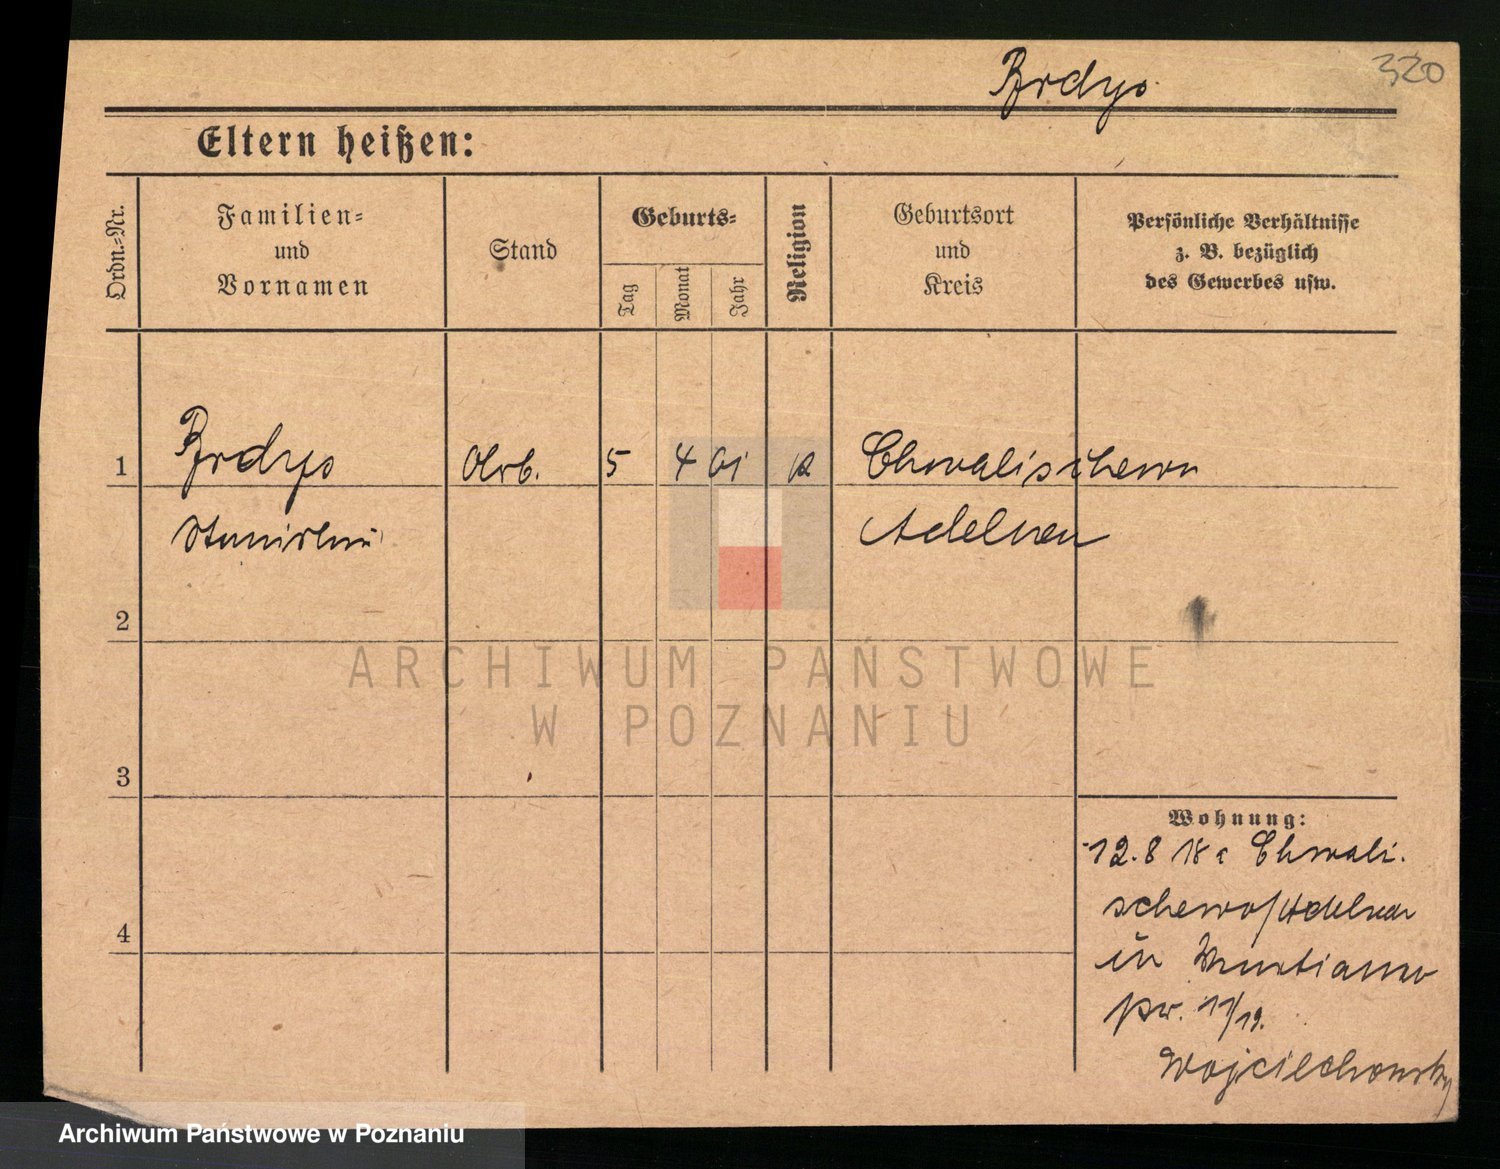 Brdys
320
Eltern heißen:
Ordn.=Nr.
Familien=
und
Vornamen
Stand
Geburts=
Tag
Monat
Jahr
Religion
Geburtsort
und
Kreis
Persönliche Verhältnisse
z. B. bezüglich
des Gewerbes usw.
1 Brdys Arb. 5 4 01 k Chwalischewo
Stanislaus Adelnau
2
3
4
Wohnung:
12. 8 18 Chwali.
schewo/Adelnau
in
pr. 11/19.
Wojciechowsky
ARCHIWUM PAŃSTWOWE
W POZNANIU
Archiwum Państwowe w Poznaniu